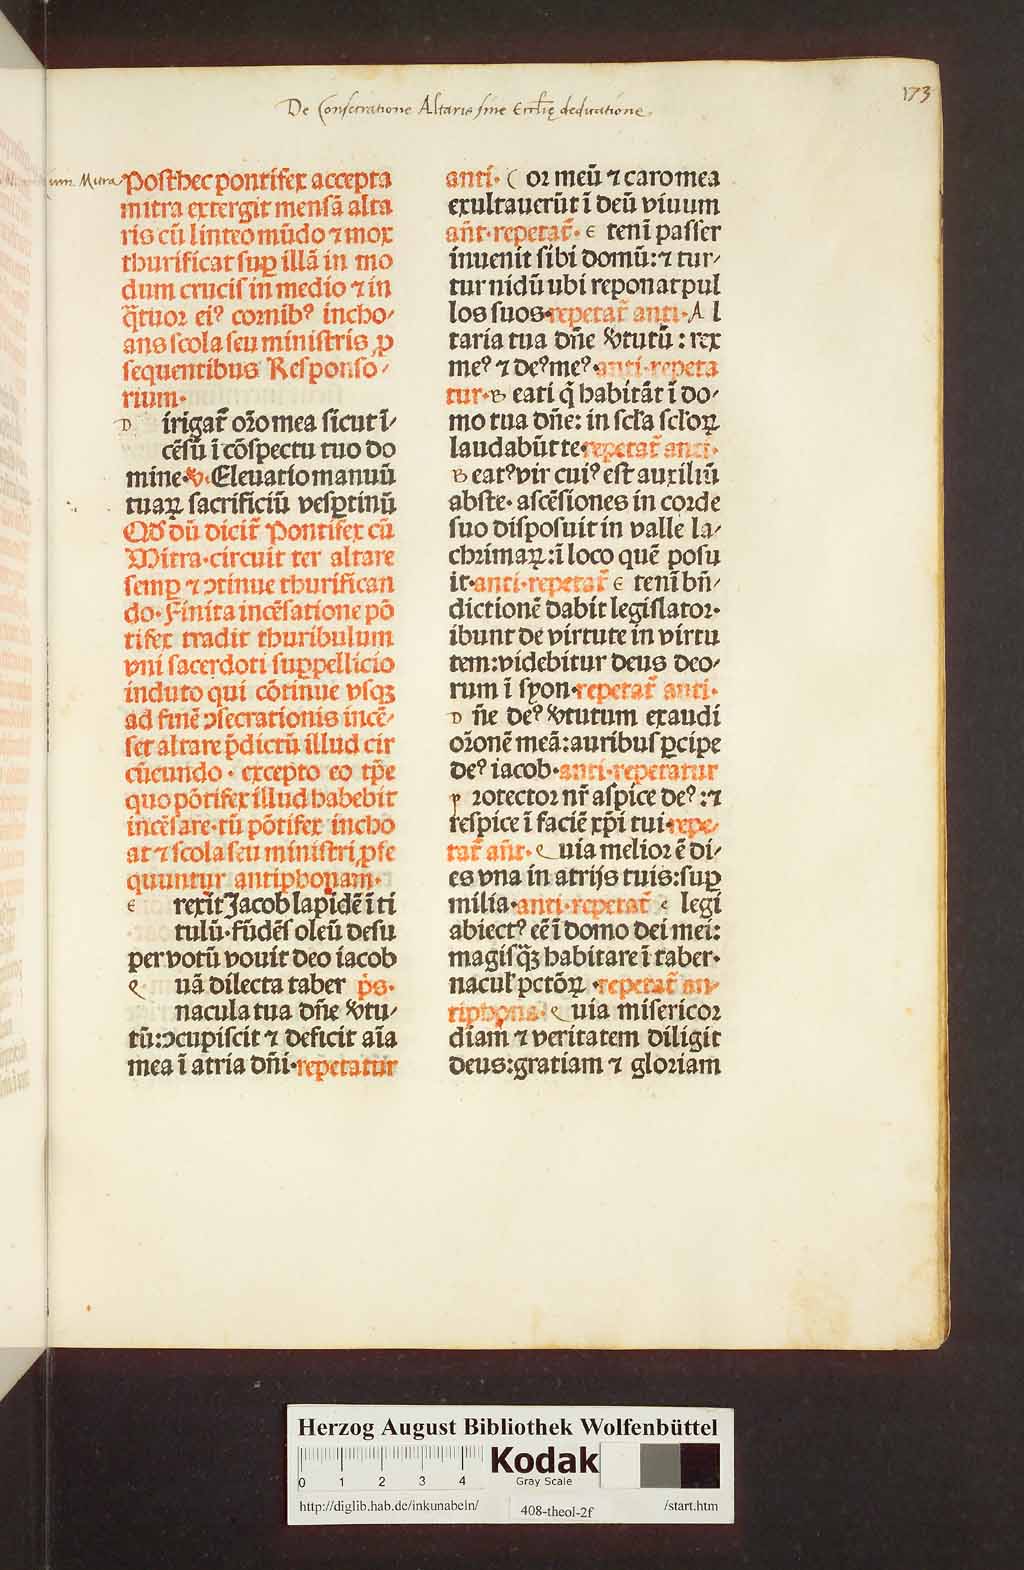 De Consecratione Altaris sine Eccłię dedicatione.
173
Mitra
Posthec pontifex accepta
mitra extergit mensã alta
ris cũ linteo mũdo ⁊ mox
thurificat suꝑ illã in mo
dum crucis in medio ⁊ in
q̃tuor eiꝰ cornibꝰ incho⸗
ans scola seu ministris ꝓ
sequentibus Responso⸗
rium·
D irigat᷑ or̃o mea sicut ĩ⸗
cẽsũ ĩ cõspectu tuo do
mine·℣·Eleuatio manuũ
tuaꝝ sacrificiũ vesꝑtinũ
Qď dũ dicit᷑ Pontifex cũ
Mitra·circuit ter altare
semꝑ ⁊ ↄtinue thurifican
do·Finita incẽsatione põ
tifex tradit thuribulum
vni sacerdoti suꝑpellicio
induto qui cõtinue vsqꝫ
ad finẽ ↄsecrationis incẽ⸗
set altare p̃dictũ illud cir
cũeundo· excepto eo tp̃e
quo põtifex illud habebit
incẽsare·tũ põtifex incho
at ⁊ scola seu ministri ꝓse
quuntur antiphonam·
E rexit Jacob lapidẽ ĩ ti
tulũ·fũdẽs oleũ desu
per votũ vouit deo iacob
Q uã dilecta taber p̃s·
nacula tua dñe v̓tu⸗
tũ:ↄcupiscit ⁊ deficit aĩa
mea ĩ atria dñi·repetatur
anti· C or meũ ⁊ caro mea
exultauerũt ĩ deũ viuum
añt·repetat᷑· E tenĩ passer
inuenit sibi domũ:⁊ tur⸗
tur nidũ ubi reponat pul
los suos·repetat᷑ anti·A l
taria tua dñe v̓tutũ: rex
meꝰ ⁊ deꝰ meꝰ·anti·repeta
tur·B eati q̃ habitãt ĩ do⸗
mo tua dñe: in scła scłoꝝ
laudabũt te·repetat᷑ anti·
B eatꝰ vir cuiꝰ est auxiliũ
abste· ascẽsiones in corde
suo disposuit in valle la⸗
chrimaꝝ:ĩ loco quẽ posu
it·anti·repetat᷑ E tenĩ bñ⸗
dictionẽ dabit legislator·
ibunt de virtute in virtu
tem:videbitur deus deo⸗
rum ĩ syon·repetat᷑ anti·
D ñe deꝰ v̓tutum exaudi
or̃onẽ meã:auribus ꝑcipe
deꝰ iacob·anti·repetatur
P rotector nr̃ aspice deꝰ:⁊
respice ĩ faciẽ xp̃i tui·repe⸗
tat᷑ añt·Q uia melior ẽ di⸗
es vna in atrijs tuis:suꝑ
milia·anti·repetat᷑ E legi
abiectꝰ eẽ ĩ domo dei mei:
magisq̃ꝫ habitare ĩ taber·
nacuł pctõꝝ ·repetat᷑ an⸗
tiphona·Q uia misericor
diam ⁊ veritatem diligit
deus:gratiam ⁊ gloriam
Herzog August Bibliothek Wolfenbüttel
0 1 2 3 4
Kodak
Gray Scale
http://diglib.hab.de/inkunabeln/
408-theol-2f
/start.htm